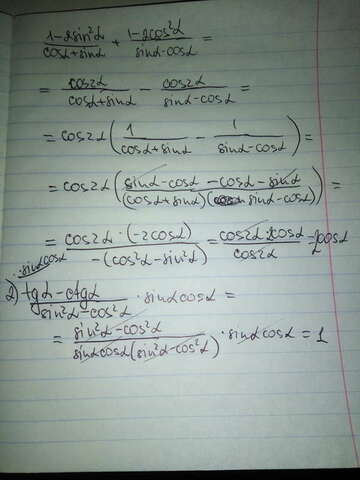 (1-2sin²α)/(cosα+sinα) + (1-2cos²α)/(sinα-cosα) =
= cos2α/(cosα+sinα) - cos2α/(sinα-cosα) =
= cos2α(1/(cosα+sinα) - 1/(sinα-cosα)) =
= cos2α((sinα-cosα-cosα-sinα)/((cosα+sinα)(sinα-cosα))) =
= (cos2α·(-2cosα))/(-(cos²α-sin²α)) = (cos2α·2cosα)/cos2α = 2cosα
: sinαcosα
2) (tgα-ctgα)/(sin²α-cos²α) · sinαcosα =
= (sin²α-cos²α)/(sinαcosα(sin²α-cos²α)) · sinαcosα = 1